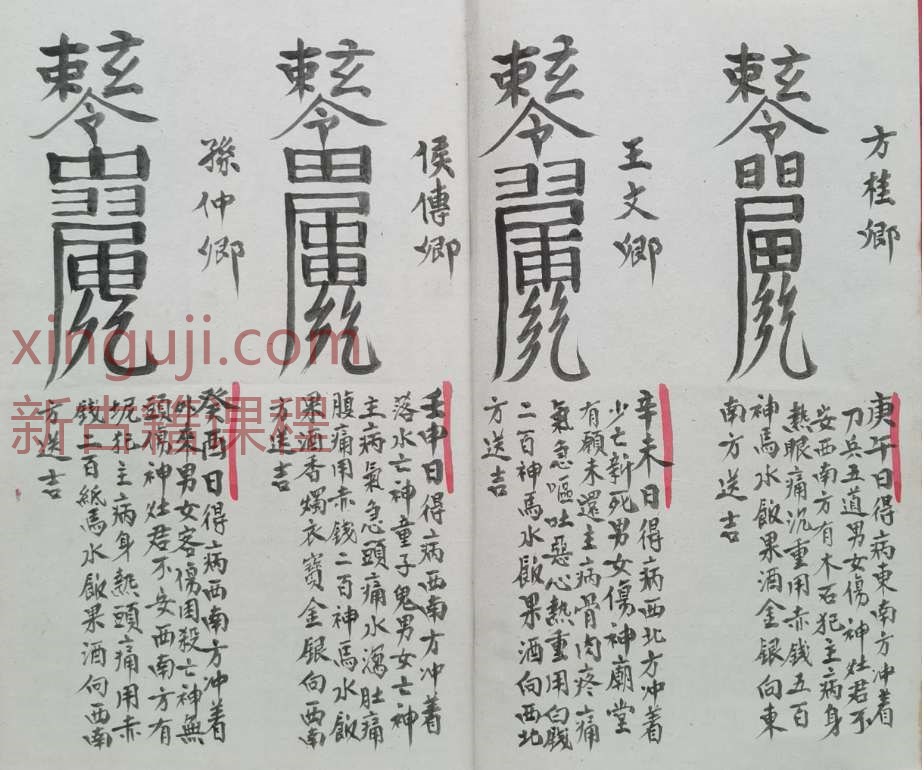 方桂卿
庚午日得病東南方冲着
刀兵五道男女傷神灶君不
安西南方有木石犯主病身
熱眼痛沉重用赤錢五百
神馬水飯果酒金銀向東
南方送吉
王文卿
辛未日得病西北方冲着
少亡新死男女傷神廟堂
有願未還主病骨肉疼痛
氣急嘔吐惡心熱重用白賤
二百神馬水飯果酒向西北
方送吉
侯傳卿
壬申日得病西南方冲着
落水亡神童子鬼男女亡神
主病氣急頭痛水瀉肚痛
腹痛用赤錢二百神馬水飯
果酒香燭衣寶金銀向西南
方送吉
孫仲卿
癸酉日得病西南方冲着
外來男女客傷困殺亡神無
頭傷神灶君不安西南方有
坑犯主病身熱頭痛用赤
錢二百紙馬水飯果酒向西南
方送吉
xinguji.com
新古籍课程